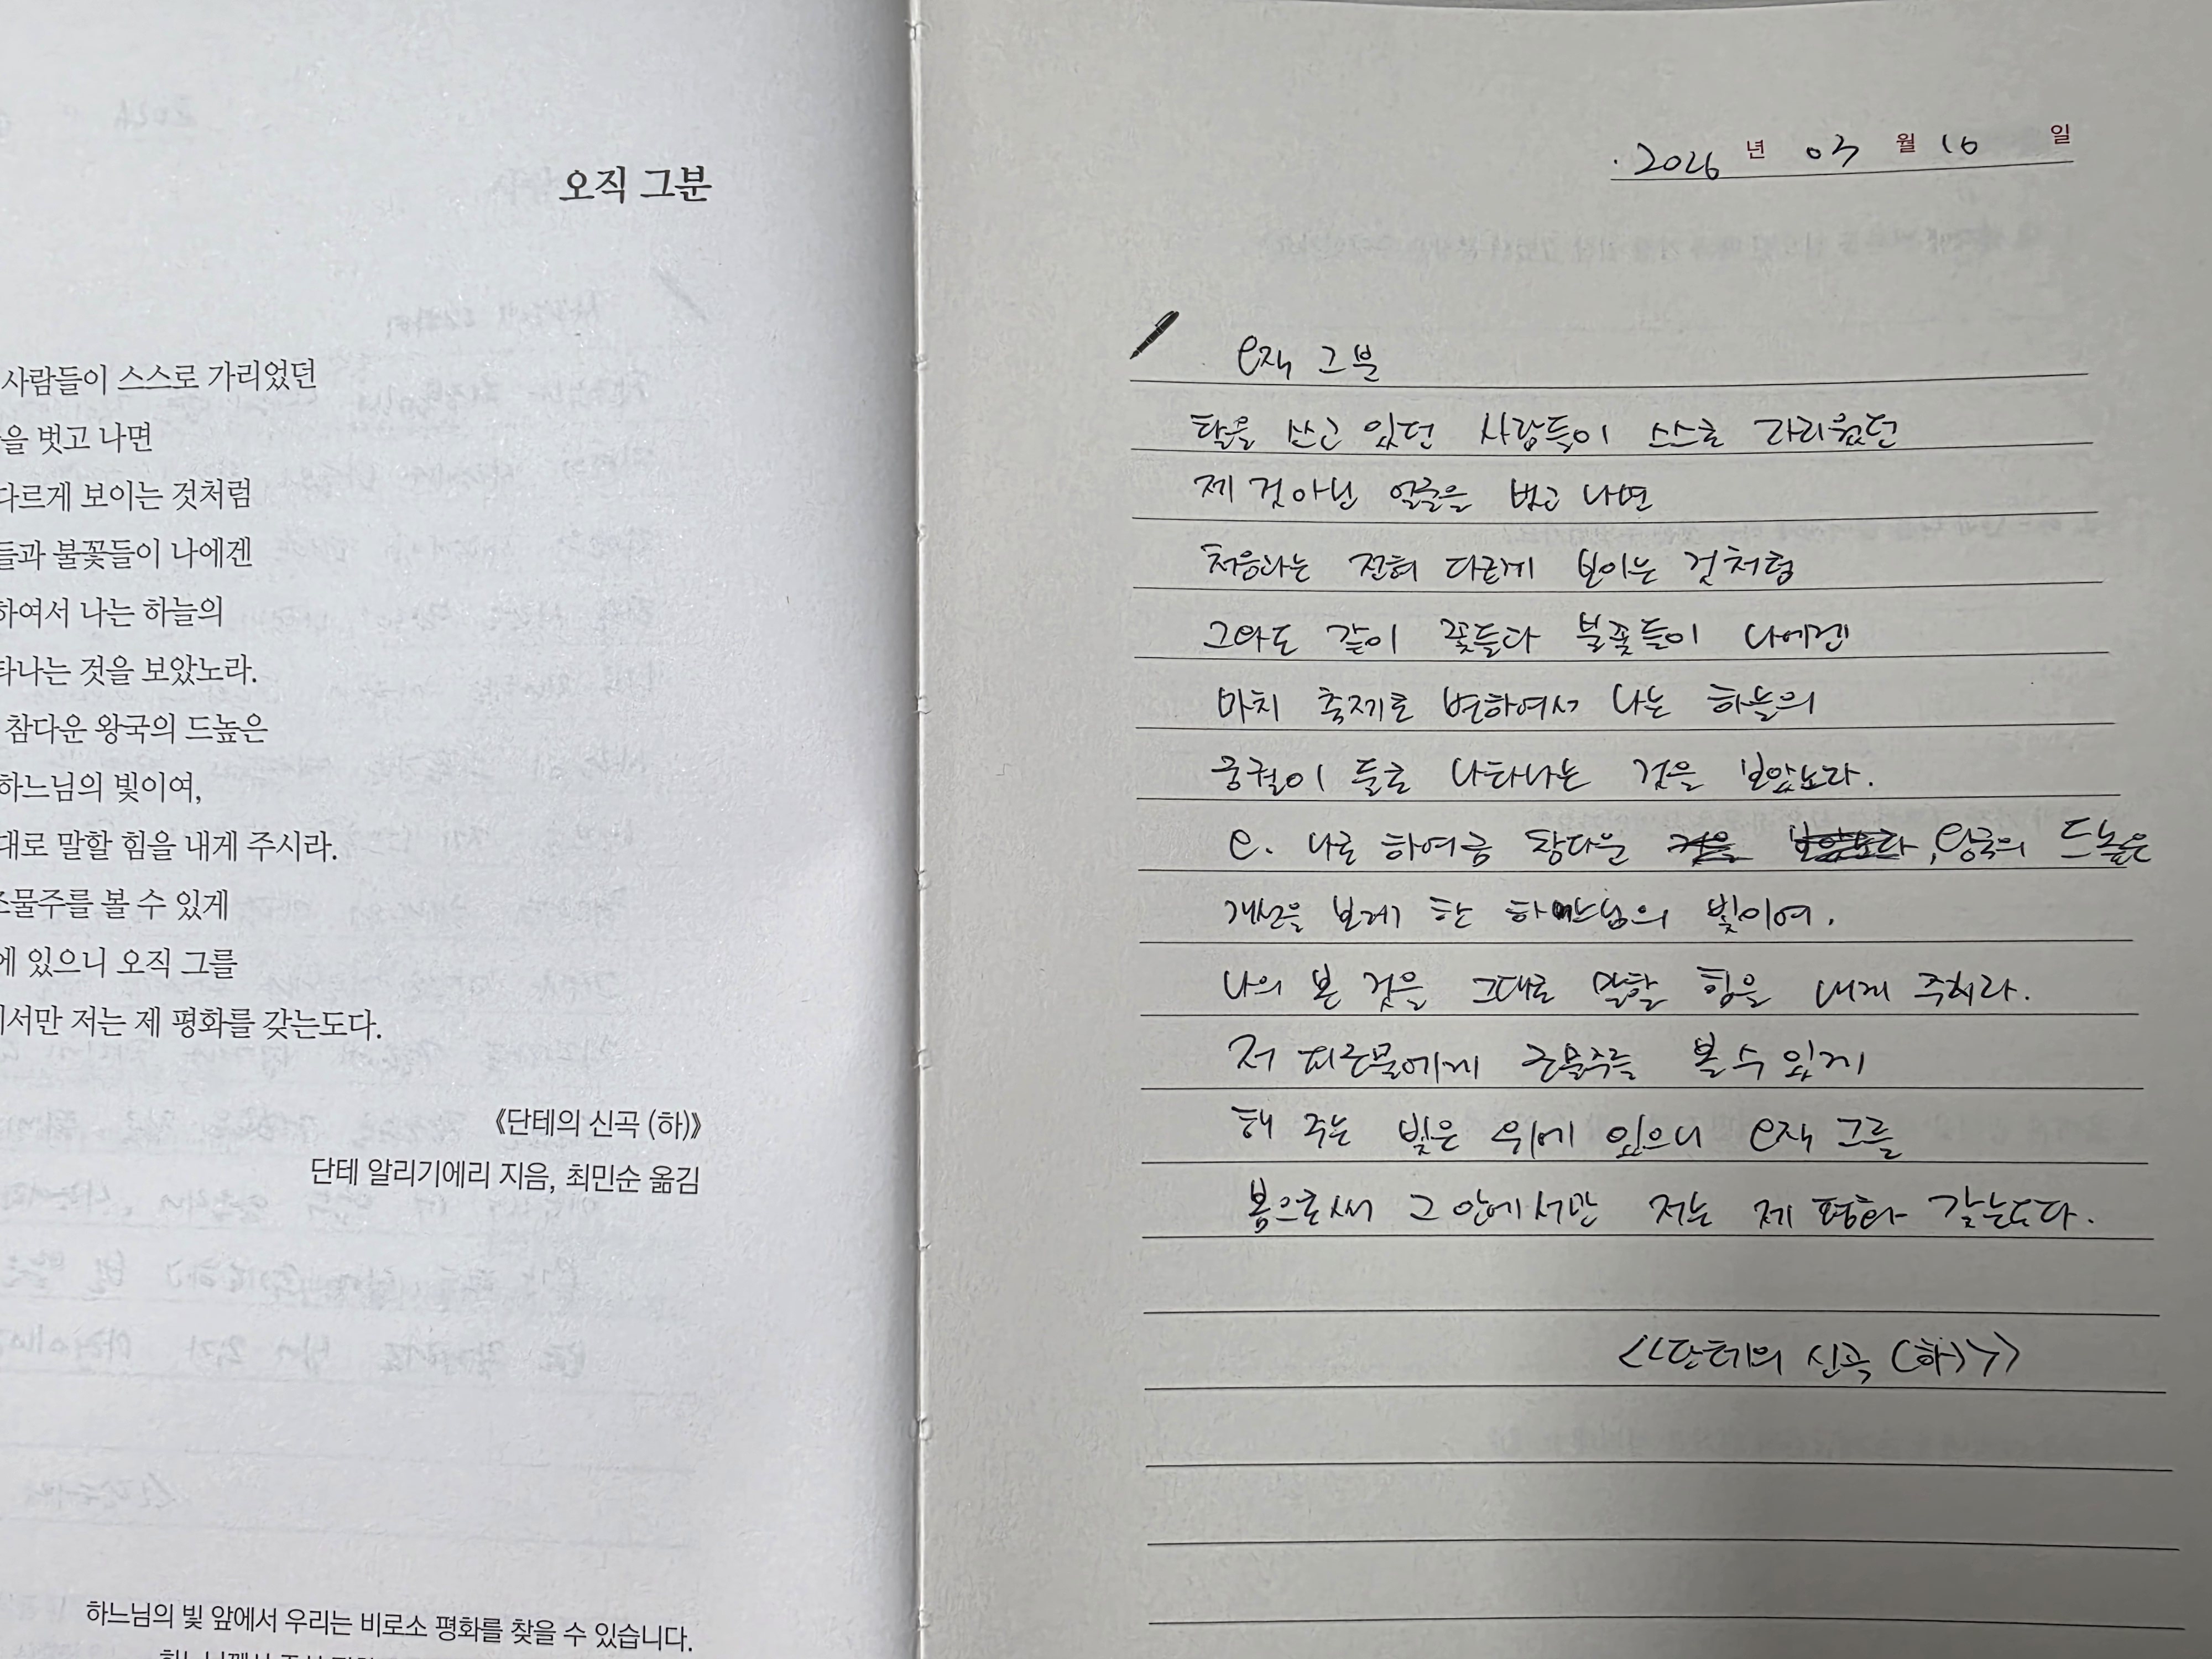 오직 그분
사람들이 스스로 가리었던
을 벗고 나면
다르게 보이는 것처럼
들과 불꽃들이 나에겐
하여서 나는 하늘의
타나는 것을 보았노라.
참다운 왕국의 드높은
하느님의 빛이여,
대로 말할 힘을 내게 주시라.
조물주를 볼 수 있게
에 있으니 오직 그를
서만 저는 제 평화를 갖는도다.
《단테의 신곡 (하)》
단테 알리기에리 지음, 최민순 옮김
하느님의 빛 앞에서 우리는 비로소 평화를 찾을 수 있습니다.
2026 년 03 월 16 일
오직 그분
탈을 쓰고 있던 사람들이 스스로 가리웠던
제 것 아닌 얼굴을 벗고 나면
처음과는 전혀 다르게 보이는 것처럼
그와도 같이 꽃들과 불꽃들이 나에겐
마치 축제로 변하여서 나는 하늘의
궁궐이 둘로 나타나는 것을 보았노라.
오. 나로 하여금 참다운 왕국의 드높은
개선을 보게 한 하느님의 빛이여.
나의 본 것을 그대로 말할 힘을 내게 주시라.
저 피조물에게 조물주를 볼 수 있게
해 주는 빛은 위에 있으니 오직 그를
봄으로써 그 안에서만 저는 제 평화 갖는도다.
<<단테의 신곡 (하)>>